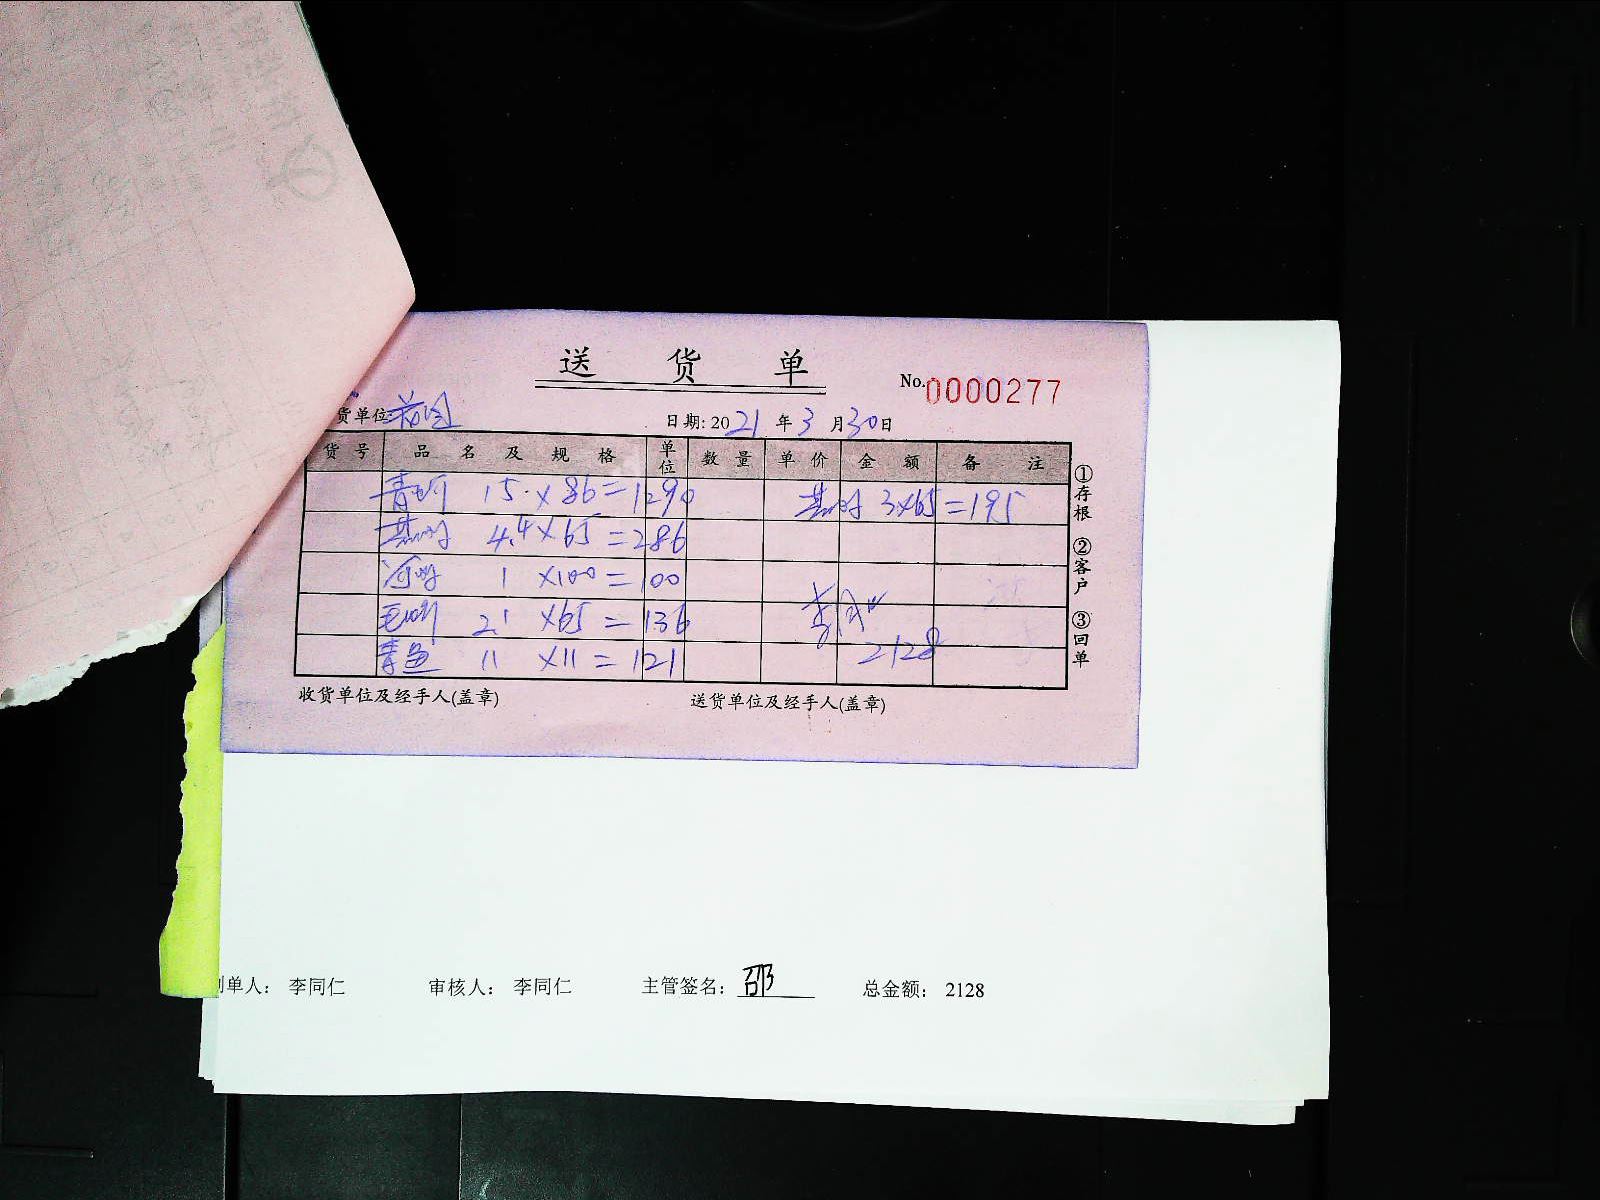 送货单
No.0000277
货单位
日期: 2021年3月30日
货号 品名及规格 单位 数量 单价 金额 备注
15. × 86 = 1290 3×65 = 195
4.4 × 65 = 286
河虾 1 ×100 = 100
毛蚶 2.1 ×65 = 136
青鱼 11 ×11 = 121
2128
①存根 ②客户 ③回单
收货单位及经手人(盖章) 送货单位及经手人(盖章)
制单人: 李同仁 审核人: 李同仁 主管签名: 邵 总金额: 2128